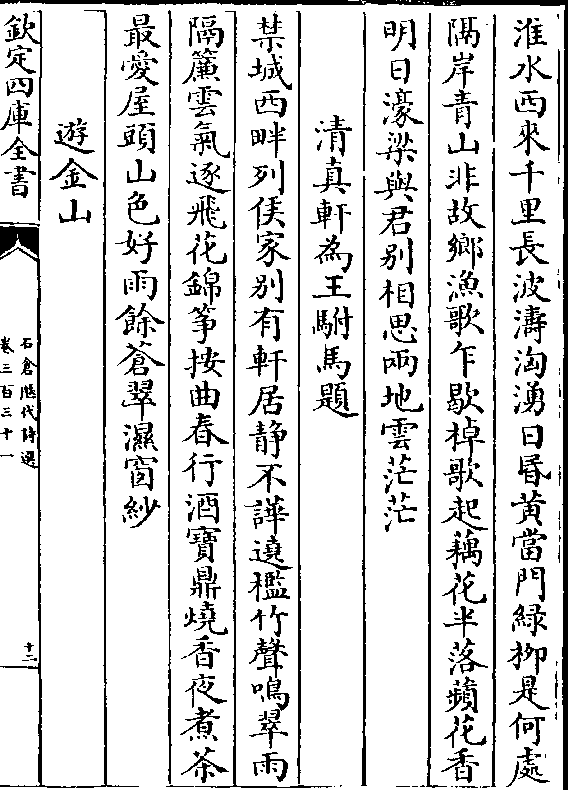 淮水西來千里長波濤洶湧日昏黃當門緑柳是何處
隔岸青山非故鄉漁歌乍歇棹歌起藕花半落蘋花香
明日濠梁與君别相思兩地雲茫茫
清真軒為王駙馬題
禁城西畔列侯家别有軒居静不譁遶檻竹聲鳴翠雨
隔簾雲氣逐飛花錦筝按曲春行酒寳鼎燒香夜煮茶
最愛屋頭山色好雨餘蒼翠濕窗紗
遊金山
欽定四庫全書
石倉歴代詩選
卷三百三十一
十二